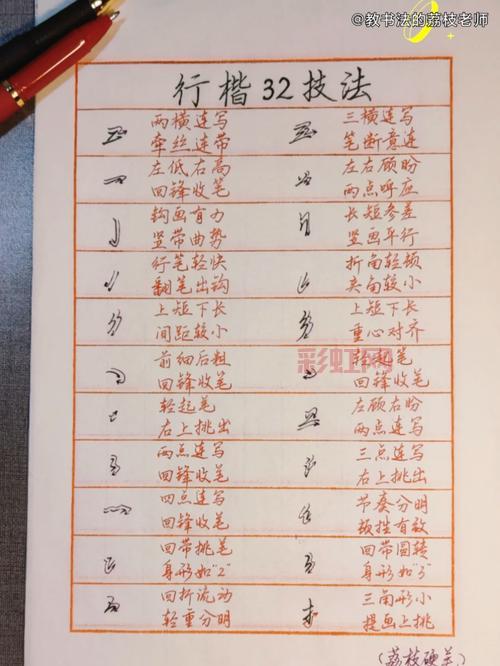 @教书法的荔枝老师
行楷32技法
两横连写 三横连写
牵丝连带 笔断意连
左低右高 左右顾盼
回锋收笔 两点呼应
钩画有力 长短参差
竖带曲势 竖画平行
行笔轻快 折角轻顿
翻笔出钩 夹角较小
上短下长 上短下长
间距较小 重心对齐
前细后粗 笔
回锋收笔 回锋收笔
轻起笔 左顾右盼
右上挑出 两点连写
两点连写 三点连写
回锋收笔 右上挑出
四点连写 节奏分明
回锋收笔 顿挫有致
回带挑笔 回带圆转
身形如"2" 身形如"3"
回折流动 三角形小
轻重分明 提画上挑
彩虹网
(荔枝硬羊)